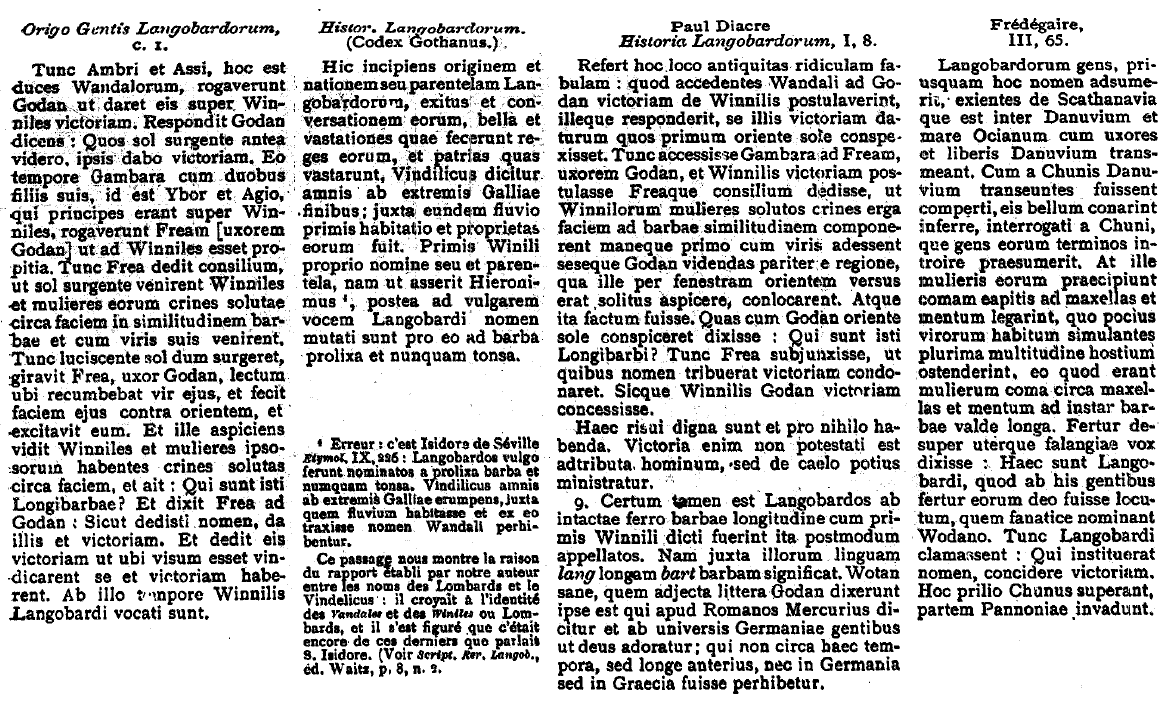 Origo Gentis Langobardorum,
c. 1.
Tunc Ambri et Assi, hoc est
duces Wandalorum, rogaverunt
Godan ut daret eis super Win-
niles victoriam. Respondit Godan
dicens : Quos sol surgente antea
videro, ipsis dabo victoriam. Eo
tempore Gambara cum duobus
filiis suis, id est Ybor et Agio,
qui principes erant super Win-
niles, rogaverunt Fream [uxorem
Godan] ut ad Winniles esset pro-
pitia. Tunc Frea dedit consilium,
ut sol surgente venirent Winniles
et mulieres eorum crines solutae
circa faciem in similitudinem bar-
bae et cum viris suis venirent.
Tunc luciscente sol dum surgeret,
giravit Frea, uxor Godan, lectum
ubi recumbebat vir ejus, et fecit
faciem ejus contra orientem, et
excitavit eum. Et ille aspiciens
vidit Winniles et mulieres ipso-
sorum habentes crines solutas
circa faciem, et ait : Qui sunt isti
Longibarbae? Et dixit Frea ad
Godan : Sicut dedisti nomen, da
illis et victoriam. Et dedit eis
victoriam ut ubi visum esset vin-
dicarent se et victoriam habe-
rent. Ab illo tempore Winnilis
Langobardi vocati sunt.
Histor. Langobardorum.
(Codex Gothanus.)
Hic incipiens originem et
nationem seu parentelam Lan-
gobardorum, exitus et con-
versationem eorum, bella et
vastationes quae fecerunt re-
ges eorum, et patrias quas
vastarunt. Vindilicus dicitur
amnis ab extremis Galliae
finibus; juxta eundem fluvio
primis habitatio et proprietas
eorum fuit. Primis Winili
proprio nomine seu et paren-
tela, nam ut asserit Hieroni-
mus ¹, postea ad vulgarem
vocem Langobardi nomen
mutati sunt pro eo ad barba
prolixa et nunquam tonsa.
¹ Erreur : c'est Isidore de Séville
Etymol. IX, 226 : Langobardos vulgo
ferunt nominatos a prolixa barba et
numquam tonsa. Vindilicus amnis
ab extremis Galliae erumpens, juxta
quem fluvium habitasse et ex eo
traxisse nomen Wandali perhi-
bentur.
Ce passage nous montre la raison
du rapport établi par notre auteur
entre les noms des Lombards et le
Vindelicus : il croyait à l'identité
des Vandales et des Winiles ou Lom-
bards, et il s'est figuré que c'était
encore de ces derniers que parlait
S. Isidore. (Voir Script. Rer. Langob.,
éd. Waitz, p. 8, n. 2.
Paul Diacre
Historia Langobardorum, I, 8.
Refert hoc loco antiquitas ridiculam fa-
bulam : quod accedentes Wandali ad Go-
dan victoriam de Winnilis postulaverint,
illeque responderit, se illis victoriam da-
turum quos primum oriente sole conspe-
xisset. Tunc accessisse Gambara ad Fream,
uxorem Godan, et Winnilis victoriam pos-
tulasse Freaque consilium dedisse, ut
Winnilorum mulieres solutos crines erga
faciem ad barbae similitudinem compone-
rent maneque primo cum viris adessent
seseque Godan videndas pariter e regione,
qua ille per fenestram orientem versus
erat solitus aspicere, conlocarent. Atque
ita factum fuisse. Quas cum Godan oriente
sole conspiceret dixisse : Qui sunt isti
Longibarbi? Tunc Frea subjunxisse, ut
quibus nomen tribuerat victoriam condo-
naret. Sicque Winnilis Godan victoriam
concessisse.
Haec risui digna sunt et pro nihilo ha-
benda. Victoria enim non potestati est
adtributa hominum, sed de caelo potius
ministratur.
9. Certum tamen est Langobardos ab
intactae ferro barbae longitudine cum pri-
mis Winnili dicti fuerint ita postmodum
appellatos. Nam juxta illorum linguam
lang longam bart barbam significat. Wotan
sane, quem adjecta littera Godan dixerunt
ipse est qui apud Romanos Mercurius di-
citur et ab universis Germaniae gentibus
ut deus adoratur; qui non circa haec tem-
pora, sed longe anterius, nec in Germania
sed in Graecia fuisse perhibetur.
Frédégaire,
III, 65.
Langobardorum gens, pri-
usquam hoc nomen adsume-
rit, exientes de Scathanavia
que est inter Danuvium et
mare Ocianum cum uxores
et liberis Danuvium trans-
meant. Cum a Chunis Danu-
vium transeuntes fuissent
comperti, eis bellum conarint
inferre, interrogati a Chuni,
que gens eorum terminos in-
troire praesumerit. At ille
mulieris eorum praecipiunt
comam eapitis ad maxellas et
mentum legarint, quo pocius
virorum habitum simulantes
plurima multitudine hostium
ostenderint, eo quod erant
mulierum coma circa maxel-
las et mentum ad instar bar-
bae valde longa. Fertur de-
super uterque falangiae vox
dixisse : Haec sunt Lango-
bardi, quod ab his gentibus
fertur eorum deo fuisse locu-
tum, quem fanatice nominant
Wodano. Tunc Langobardi
clamassent : Qui instituerat
nomen, concidere victoriam.
Hoc prilio Chunus superant,
partem Pannoniae invadunt.